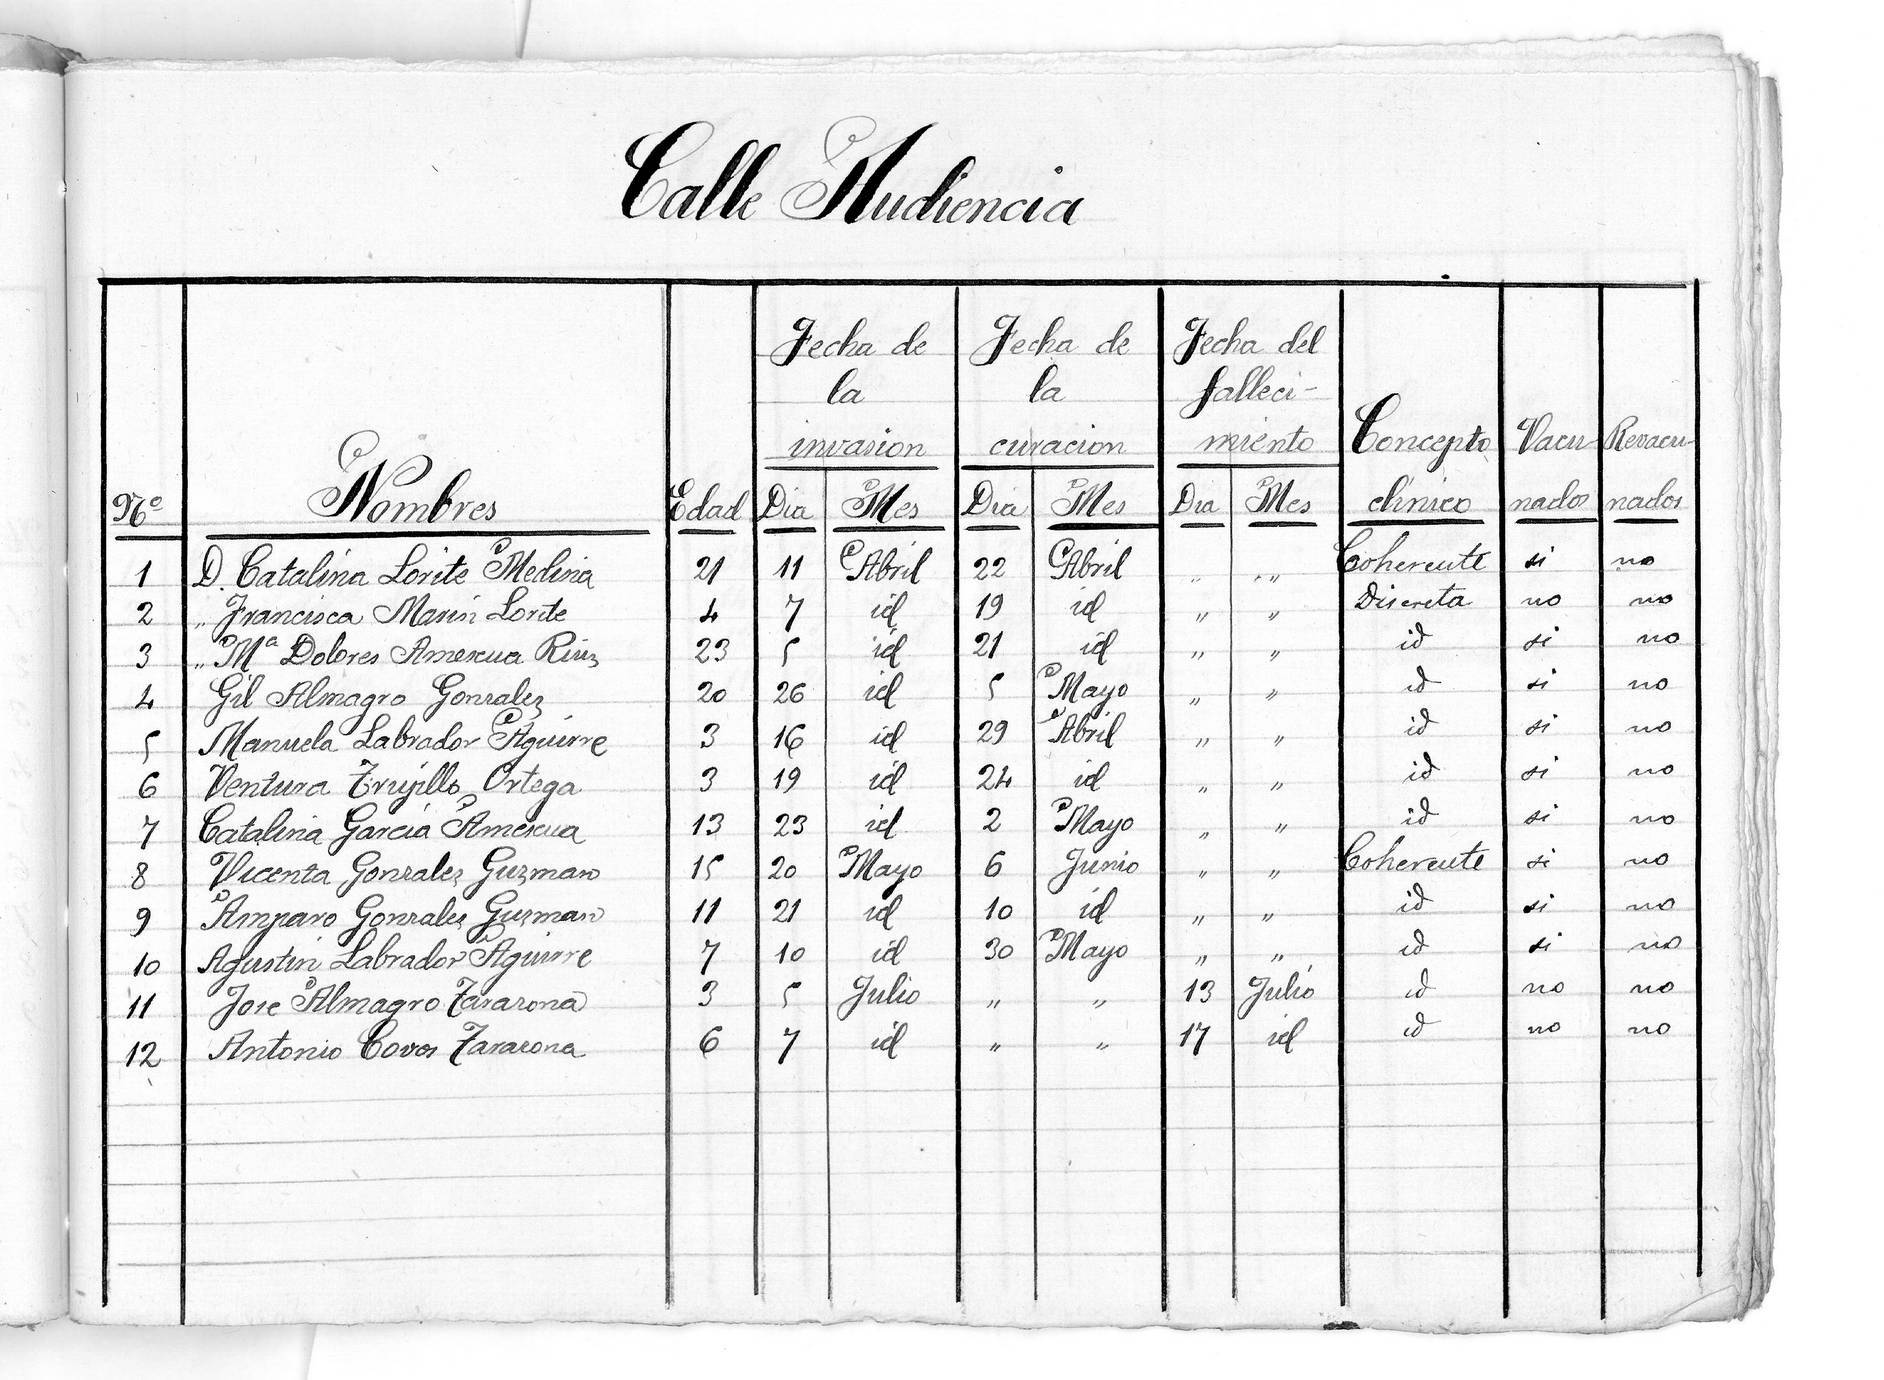 Calle Audiencia
Nº Nombres Edad Fecha de la invasion Dia Mes Fecha de la curacion Dia Mes Fecha del falleci-miento Dia Mes Concepto clínico Vacu-nados Revacu-nados
1 D. Catalina Lorite Medina 21 11 Abril 22 Abril „ „ Coherente si no
2 „ Francisca Marin Lorite 4 7 id 19 id „ „ Discreta no no
3 „ Mª Dolores Amescua Ruiz 23 5 id 21 id „ „ id si no
4 Gil Almagro Gonzalez 20 26 id 5 Mayo „ „ id si no
5 Manuela Labrador Aguirre 3 16 id 29 Abril „ „ id si no
6 Ventura Trujillo Ortega 3 19 id 24 id „ „ id si no
7 Catalina Garcia Amescua 13 23 id 2 Mayo „ „ id si no
8 Vicenta Gonzalez Guzman 15 20 Mayo 6 Junio „ „ Coherente si no
9 Amparo Gonzalez Guzman 11 21 id 10 id „ „ id si no
10 Agustin Labrador Aguirre 7 10 id 30 Mayo „ „ id si no
11 Jose Almagro Tararona 3 5 Julio „ „ 13 Julio id no no
12 Antonio Covos Tararona 6 7 id „ „ 17 id id no no